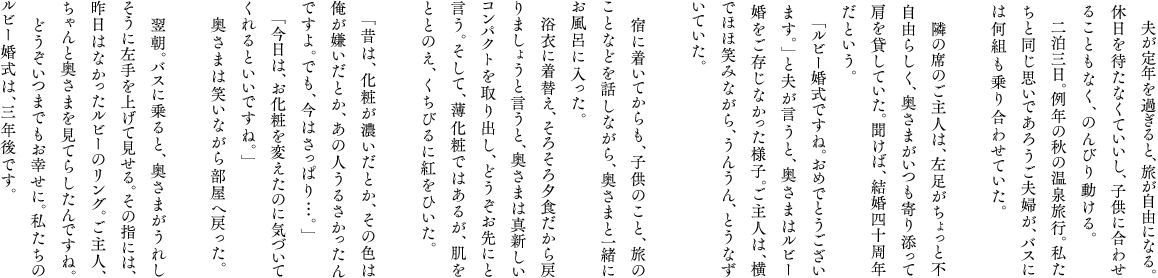 夫が定年を過ぎると、旅が自由になる。
休日を待たなくていいし、子供に合わせ
ることもなく、のんびり動ける。
二泊三日。例年の秋の温泉旅行。私た
ちと同じ思いであろうご夫婦が、バスに
は何組も乗り合わせていた。
隣の席のご主人は、左足がちょっと不
自由らしく、奥さまがいつも寄り添って
肩を貸していた。聞けば、結婚四十周年
だという。
「ルビー婚式ですね。おめでとうござい
ます。」と夫が言うと、奥さまはルビー
婚をご存じなかった様子。ご主人は、横
でほほ笑みながら、うんうん、とうなず
いていた。
宿に着いてからも、子供のこと、旅の
ことなどを話しながら、奥さまと一緒に
お風呂に入った。
浴衣に着替え、そろそろ夕食だから戻
りましょうと言うと、奥さまは真新しい
コンパクトを取り出し、どうぞお先にと
言う。そして、薄化粧ではあるが、肌を
ととのえ、くちびるに紅をひいた。
「昔は、化粧が濃いだとか、その色は
俺が嫌いだとか、あの人うるさかったん
ですよ。でも、今はさっぱり…。」
「今日は、お化粧を変えたのに気づいて
くれるといいですね。」
奥さまは笑いながら部屋へ戻った。
翌朝。バスに乗ると、奥さまがうれし
そうに左手を上げて見せる。その指には、
昨日はなかったルビーのリング。ご主人、
ちゃんと奥さまを見てらしたんですね。
どうぞいつまでもお幸せに。私たちの
ルビー婚式は、三年後です。